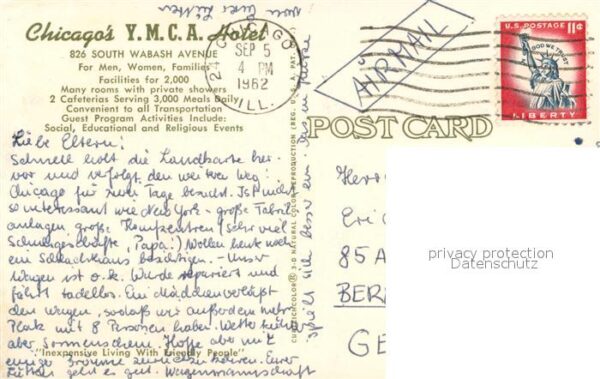 Chicago's Y.M.C.A. Hotel
826 SOUTH WABASH AVENUE
For Men, Women, Families
Facilities for 2,000
Many rooms with private showers
2 Cafeterias Serving 3,000 Meals Daily
Convenient to all Transportation
Guest Program Activities Include:
Social, Educational and Religious Events
CHICAGO
SEP 5
4 PM
1962
ILL.
AIR MAIL
U.S. POSTAGE 11¢
IN GOD WE TRUST
LIBERTY
POST CARD
Liebe Eltern!
Schnell holt die Landkarte her-
vor und verfolgt den weiteren Weg:
Chicago für zwei Tage besucht. Ist nicht
so interessant wie New York - große Fabrik-
anlagen, große (sehr viel
, Papa!) Wollen heute noch
ein Schlachthaus besichtigen. - Unser
Wagen ist o.k. Wurde repariert und
fährt tadellos. Ein Mädchen verläßt
den Wagen, sodaß wir außerdem mehr
Platz mit 8 Personen haben. Wetter kühl
aber Sonnenschein. Hoffe aber mit
einiger Bräune zurückzukehren. Eurer
geht es gut.
"Inexpensive Living With Friendly People"
Herr
Eric
85 A
BER
GE
privacy protection
Datenschutz